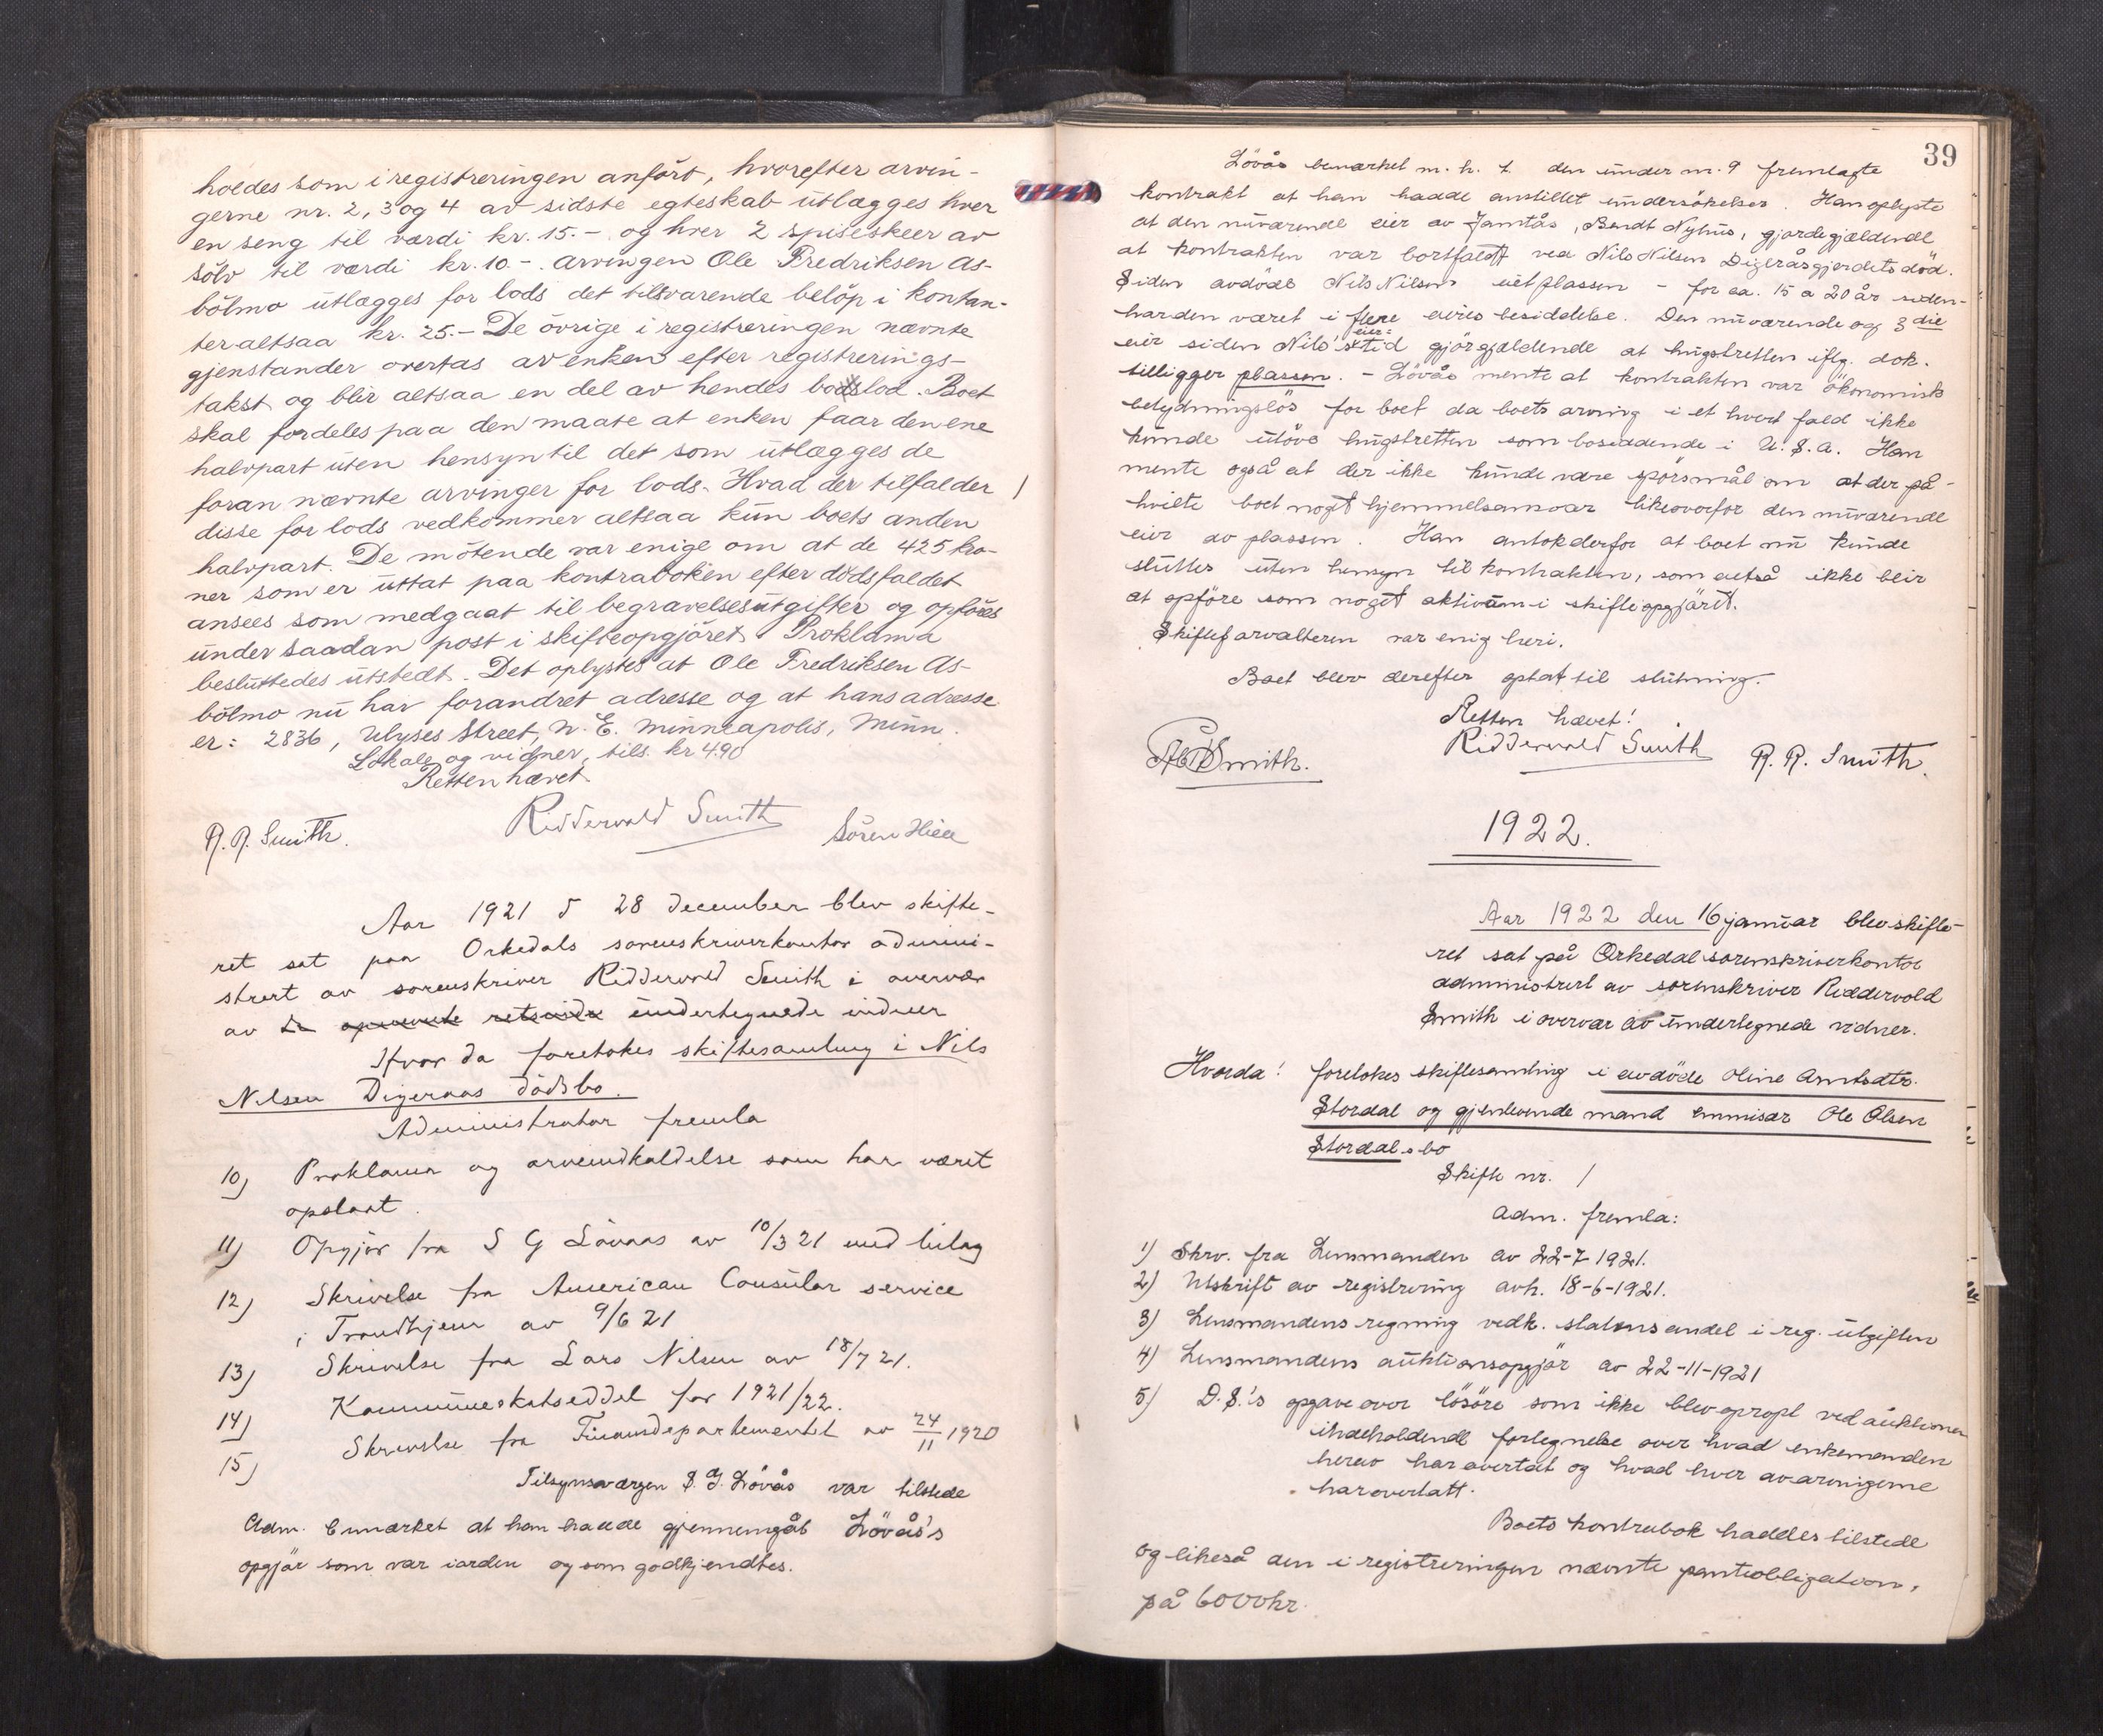 holdes som i registreringen anført, hvorefter arvin-
gerne nr. 2, 3 og 4 av sidste egteskab utlægges hver
en seng til værdi kr. 15.- og hver 2 spiseskeer av
sölv til værdi kr. 10.-. Arvingen Ole Fredriksen As-
bölmo utlægges for lods det tilsvarende belöp i kontan-
ter altsaa kr. 25.- De övrige i registreringen nævnte
gjenstander overtas av enken efter registrerings-
takst og blir altsaa en del av hendes boslod. Boet
skal fordeles paa den maate at enken faar den ene
halvpart uten hensyn til det som utlægges de
foran nævnte arvinger for lods. Hvad der tilfalder
disse for lods vedkommer altsaa kun boets anden
halvpart. De mötende var enige om at de 425 kro-
ner som er uttat paa kontraboken efter dödsfaldet
ansees som medgaat til begravelsesutgifter og opföres
under saadan post i skifteopgjöret. Proklama
besluttedes utstedt. Det oplystes at Ole Fredriksen As-
bölmo nu har forandret adresse og at hans adresse
er: 2836, Ulyses Street, N. E. Minneapolis, Minn.
Lokale og vidner, tils. kr 4.90
Retten hævet
R. R. Smith. Ridderwold Smith Sören
Aar 1921 d 28 december blev skifte-
ret sat paa Orkedals sorenskriverkontor admini-
strert av sorenskriver Ridderwold Smith i overvær
av de opnevnte retsvidn undertegnede vidner
Hvor da foretokes skiftesamling i Nils
Nilsen Digeraas dödsbo.
Administrator fremla
10) Proklama og arveindkaldelse som har været
opslaat.
11) Opgjör fra S G Lövaas av 10/3 21 med bilag
12) Skrivelse fra American Consular service
i Trondhjem av 9/6 21
13) Skrivelse fra Lars Nilsen av 18/7 21.
14) Kommuneskatseddel for 1921/22.
15) Skrivelse fra Finansdepartementet av 24/11 1920
Tilsynsværgen S. G. Lövås var tilstede
Adm. bemærket at han hadde gjennemgåt Lövås's
opgjör som var iorden og som godkjendtes.
39
Lövås bemærket m. h. t. den under nr. 9 fremlagte
kontrakt at han hadde anstillet undersökelser. Han oplyste
at den nuværende eier av Jamtås, Bendt Nyhus, gjorde gjældende
at kontrakten var bortfaldt ved Nils Nilsen Digeråsgjerdets död.
Siden avdöde Nils Nilsens eiet plassen - for ca. 15 a 20 år siden-
har den været i flere eieres besiddelse. Den nuværende og 3die
eier siden Nils's eier=tid gjör gjældende at hugstretten iflg. dok.
tilligger plassen. - Lövås mente at kontrakten var ökonomisk
betydningslös for boet da boets arving i et hvert fald ikke
kunde utöve hugstretten som boseddende i U.S.A. Han
mente også at der ikke kunde være spörsmål om at der på-
hvilte boet noget hjemmelsansvar likeoverfor den nuværende
eier av plassen. Han antok derfor at boet nu kunde
sluttes uten hensyn til kontrakten, som altså ikke blir
at opföre som noget aktivum i skifteopgjöret.
Skifteforvalteren var enig heri.
Boet blev derefter optat til slutning.
Retten hævet!
Smith. Ridderwold Smith R. R. Smith.
1922.
Aar 1922 den 16 januar blev skifte-
ret sat på Orkedal sorenskriverkontor
administrert av sorenskriver Riddervold
Smith i overvær av undertegnede vidner.
Hvorda: foretokes skiftesamling i avdöde Oline Arntsdtr.
Stordal og gjenlevende mand emmisær Ole Olsen
Stordals bo
Skifte nr. 1
Adm. fremla:
1) Skrv. fra Lensmanden av 22-7-1921.
2) Utskrift av registrering avh. 18-6-1921.
3) Lensmandens regning vedk. statens andel i reg. utgiften
4) Lensmandens auktionsopgjör av 22-11-1921
5) D. S.'s opgave over lösöre som ikke blev opropt ved auktionen
indeholdende fortegnelse over hvad enkemanden
herav har overtat og hvad hver av arvingerne
har overtatt.
Boets kontrabok haddes tilstede
og likeså den i registreringen nævnte panteobligation,
på 6000 kr.